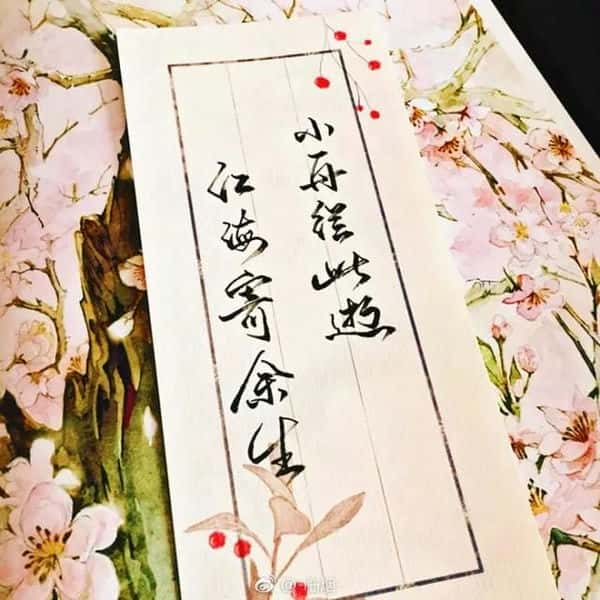 小舟従此逝
江海寄余生